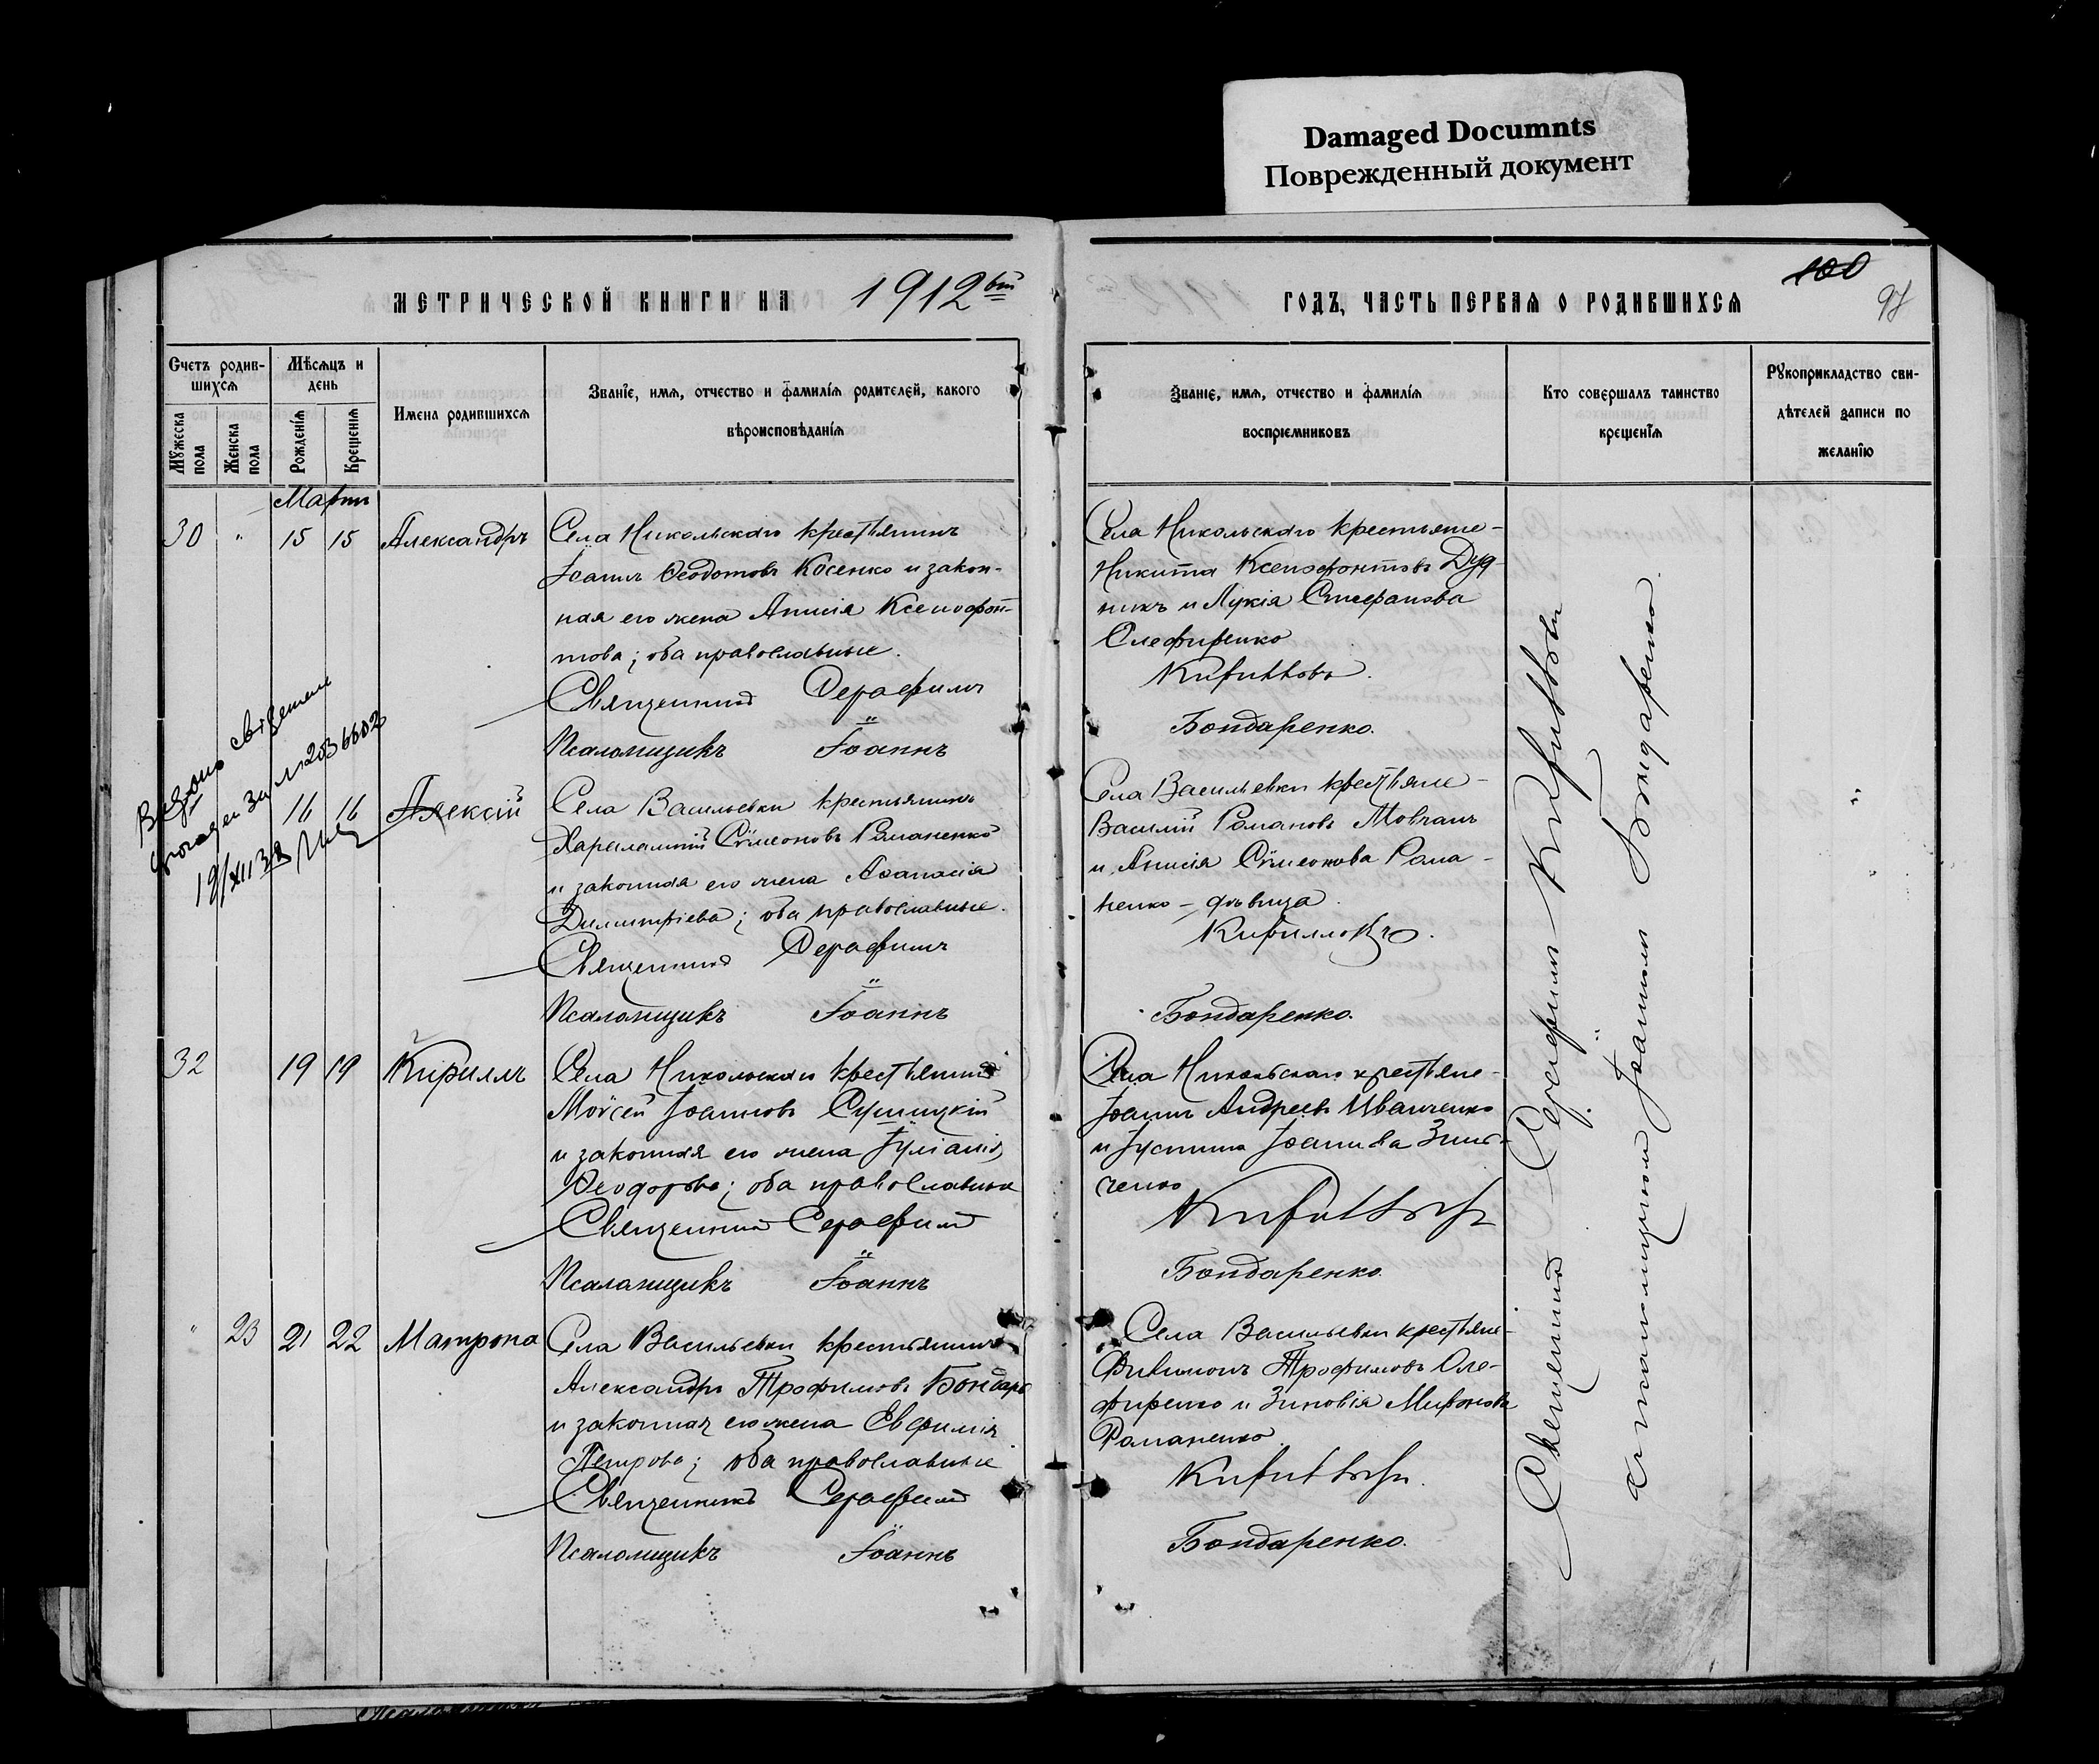 Damaged Documnts
Поврежденный документ
МЕТРИЧЕСКОЙ КНИГИ НА 1912
Счетъ родив-
шихся
Мужеска пола
Женска пола
Мѣсяцъ и
день
Рожденія
Крещенія
Имена родившихся
Званїе, имя, отчество и фамилїя родителей, какого
вѣроисповѣданїя
Мартъ
30 " 15 15 Александръ
Села Никольскаго крестьянинъ
Іоаннъ Ѳеодотовъ Косенко и закон-
ная его жена Анисія Ксенофон-
това; оба православные.
Священникъ Серафимъ
Псаломщикъ Іоаннъ
19/XII 38
16 16 Алексій
Села Васильевки крестьянинъ
Харалампій Сѵмеоновъ Романенко
и законная его жена Аѳанасія
Димитріева; оба православные.
Священникъ Серафимъ
Псаломщикъ Іоаннъ
32 19 19 Кириллъ
Села Никольскаго крестьянинъ
Моѵсей Іоанновъ Сушицкій
и законная его жена Іуліанія
Ѳеодорова; оба православные
Священникъ Серафимъ
Псаломщикъ Іоаннъ
" 23 21 22 Матрона
Села Васильевки крестьянинъ
Александръ Трофимовъ Бондарь
и законная его жена Евфимія
Петрова; оба православные
Священникъ Серафимъ
Псаломщикъ Іоаннъ
ГОДЪ, ЧАСТЬ ПЕРВАЯ О РОДИВШИХСЯ
100
97
Званіе, имя, отчество и фамилія
воспріемниковъ
Кто совершалъ таинство
крещенїя
Рукоприкладство сви-
дѣтелей записи по
желанїю
Села Никольскаго крестьяне-
Никита Ксенофонтовъ Дуд-
никъ и Лукія Стефанова
Олефиренко
Кирилловъ.
Бондаренко.
Села Васильевки крестьяне-
Василій Романовъ Мовчанъ
и Анисія Сѵмеонова Рома-
ненко - дѣвица.
Кирилловъ.
Бондаренко.
Села Никольскаго крестьяне-
Іоаннъ Андреевъ Иванченко
и Іустина Іоаннова Зин-
ченко
Кирилловъ
Бондаренко.
Села Васильевки крестьяне-
Филимонъ Трофимовъ Оле-
фиренко и Зиновія Миронова
Романенко.
Кирилловъ.
Бондаренко.
Священникъ Серафимъ Кирилловъ
съ псаломщикомъ Іоанномъ Бондаренко.